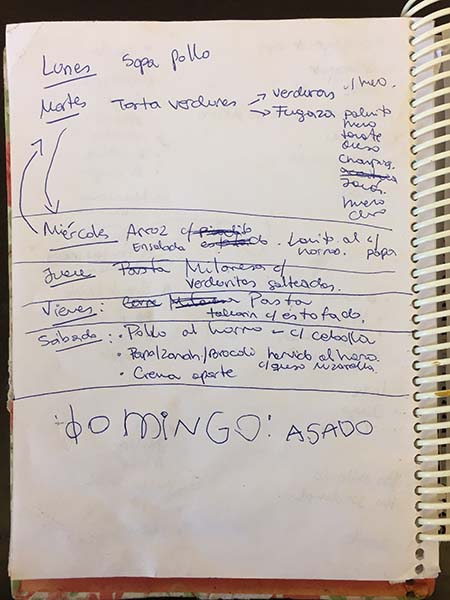 Lunes Sopa pollo
Martes Tarta verduras → verduras
→ Fugaza
palmito
huevo
tomate
queso
Jamón
huevo
Miércoles Arroz c/
Ensalada estofado. Lomito al c/
horno. papa
Jueve Pasta Milanesa c/
verduritas salteadas.
Viernes: Tarta Milanesa Pasta
tallarin c/estofado.
Sabado: • Pollo al horno - c/ cebolla
• Papa/zanah/Brocoli hervido al horno.
c/queso muzarella.
• Crema aparte
DOMINGO: ASADO